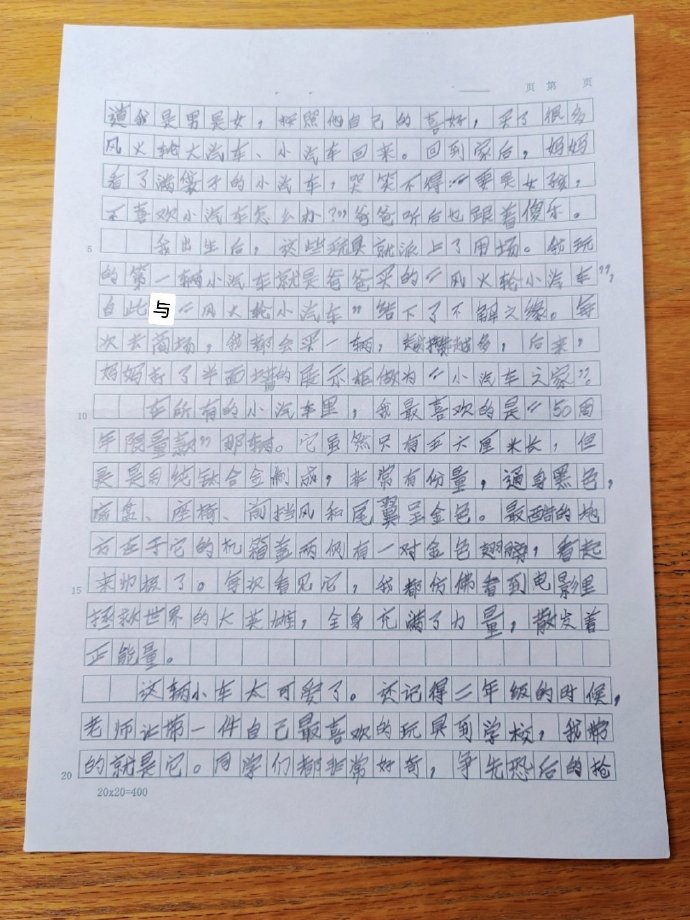 页 第 页
道我是男是女，按照他自己的喜好，买了很多
风火轮大汽车、小汽车回来。回到家后，妈妈
看了满袋子的小汽车，哭笑不得：“要是女孩，
不喜欢小汽车怎么办？”爸爸听后也跟着傻乐。
5 我出生后，这些玩具就派上了用场。我玩
的第一辆小汽车就是爸爸买的“风火轮小汽车”，
自此与“风火轮小汽车”结下了不解之缘。每
次去商场，我都会买一辆，越攒越多，后来，
妈妈打了半面墙的展示柜做为“小汽车之家”。
10 在所有的小汽车里，我最喜欢的是“50周
年限量款”那辆。它虽然只有五六厘米长，但
是是用纯钛合金制成，非常有份量，通身黑色，
底盘、座椅、前挡风和尾翼呈金色。最酷的地
方在于它的机箱盖两侧有一对金色翅膀，看起
15 来帅极了。每次看见它，我都仿佛看到电影里
拯救世界的大英雄，全身充满了力量，散发着
正能量。
这辆小车太可爱了。还记得二年级的时候，
老师让带一件自己最喜欢的玩具到学校，我带
20 的就是它。同学们都非常好奇，争先恐后的抢
20x20=400